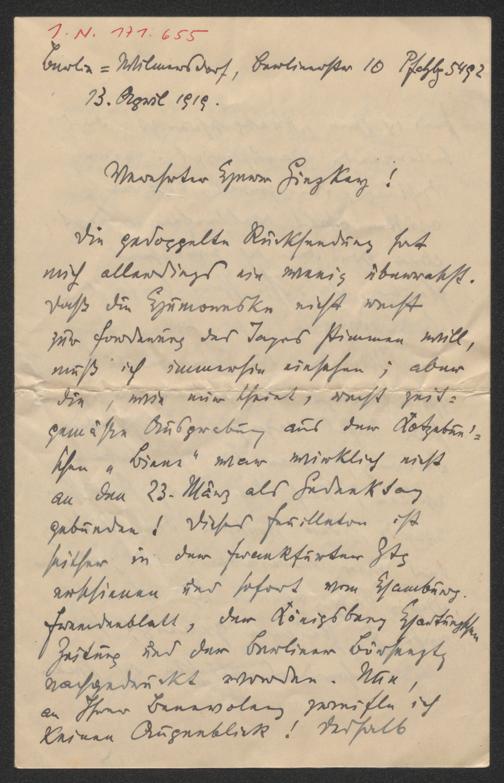 I.N. 171.655
Berlin=Wilmersdorf, Berlinerstr 10 Pfalzbg 5492
13. April 1919.
Verehrter Herr Ginzkey!
Die gedoppelte Rücksendung hat
mich allerdings ein wenig überrascht.
Daß die Humoreske nicht recht
zur Forderung des Tages stimmen will,
muß ich immerhin einsehen; aber
die, wie mir scheint, recht zeit=
gemäße Ausgrabung aus der Kotzebue'=
schen „Biene" war wirklich nicht
an den 23. März als Gedenktag
gebunden! Dieses Feuilleton ist
seither in der Frankfurter Ztg
erschienen und sofort vom Hamburg.
Fremdenblatt, der Königsberg Hartungschen
Zeitung und der Berliner Börsenztg
nachgedruckt worden. Nun,
an Ihrer Benevolenz zweifle ich
keinen Augenblick! Deshalb